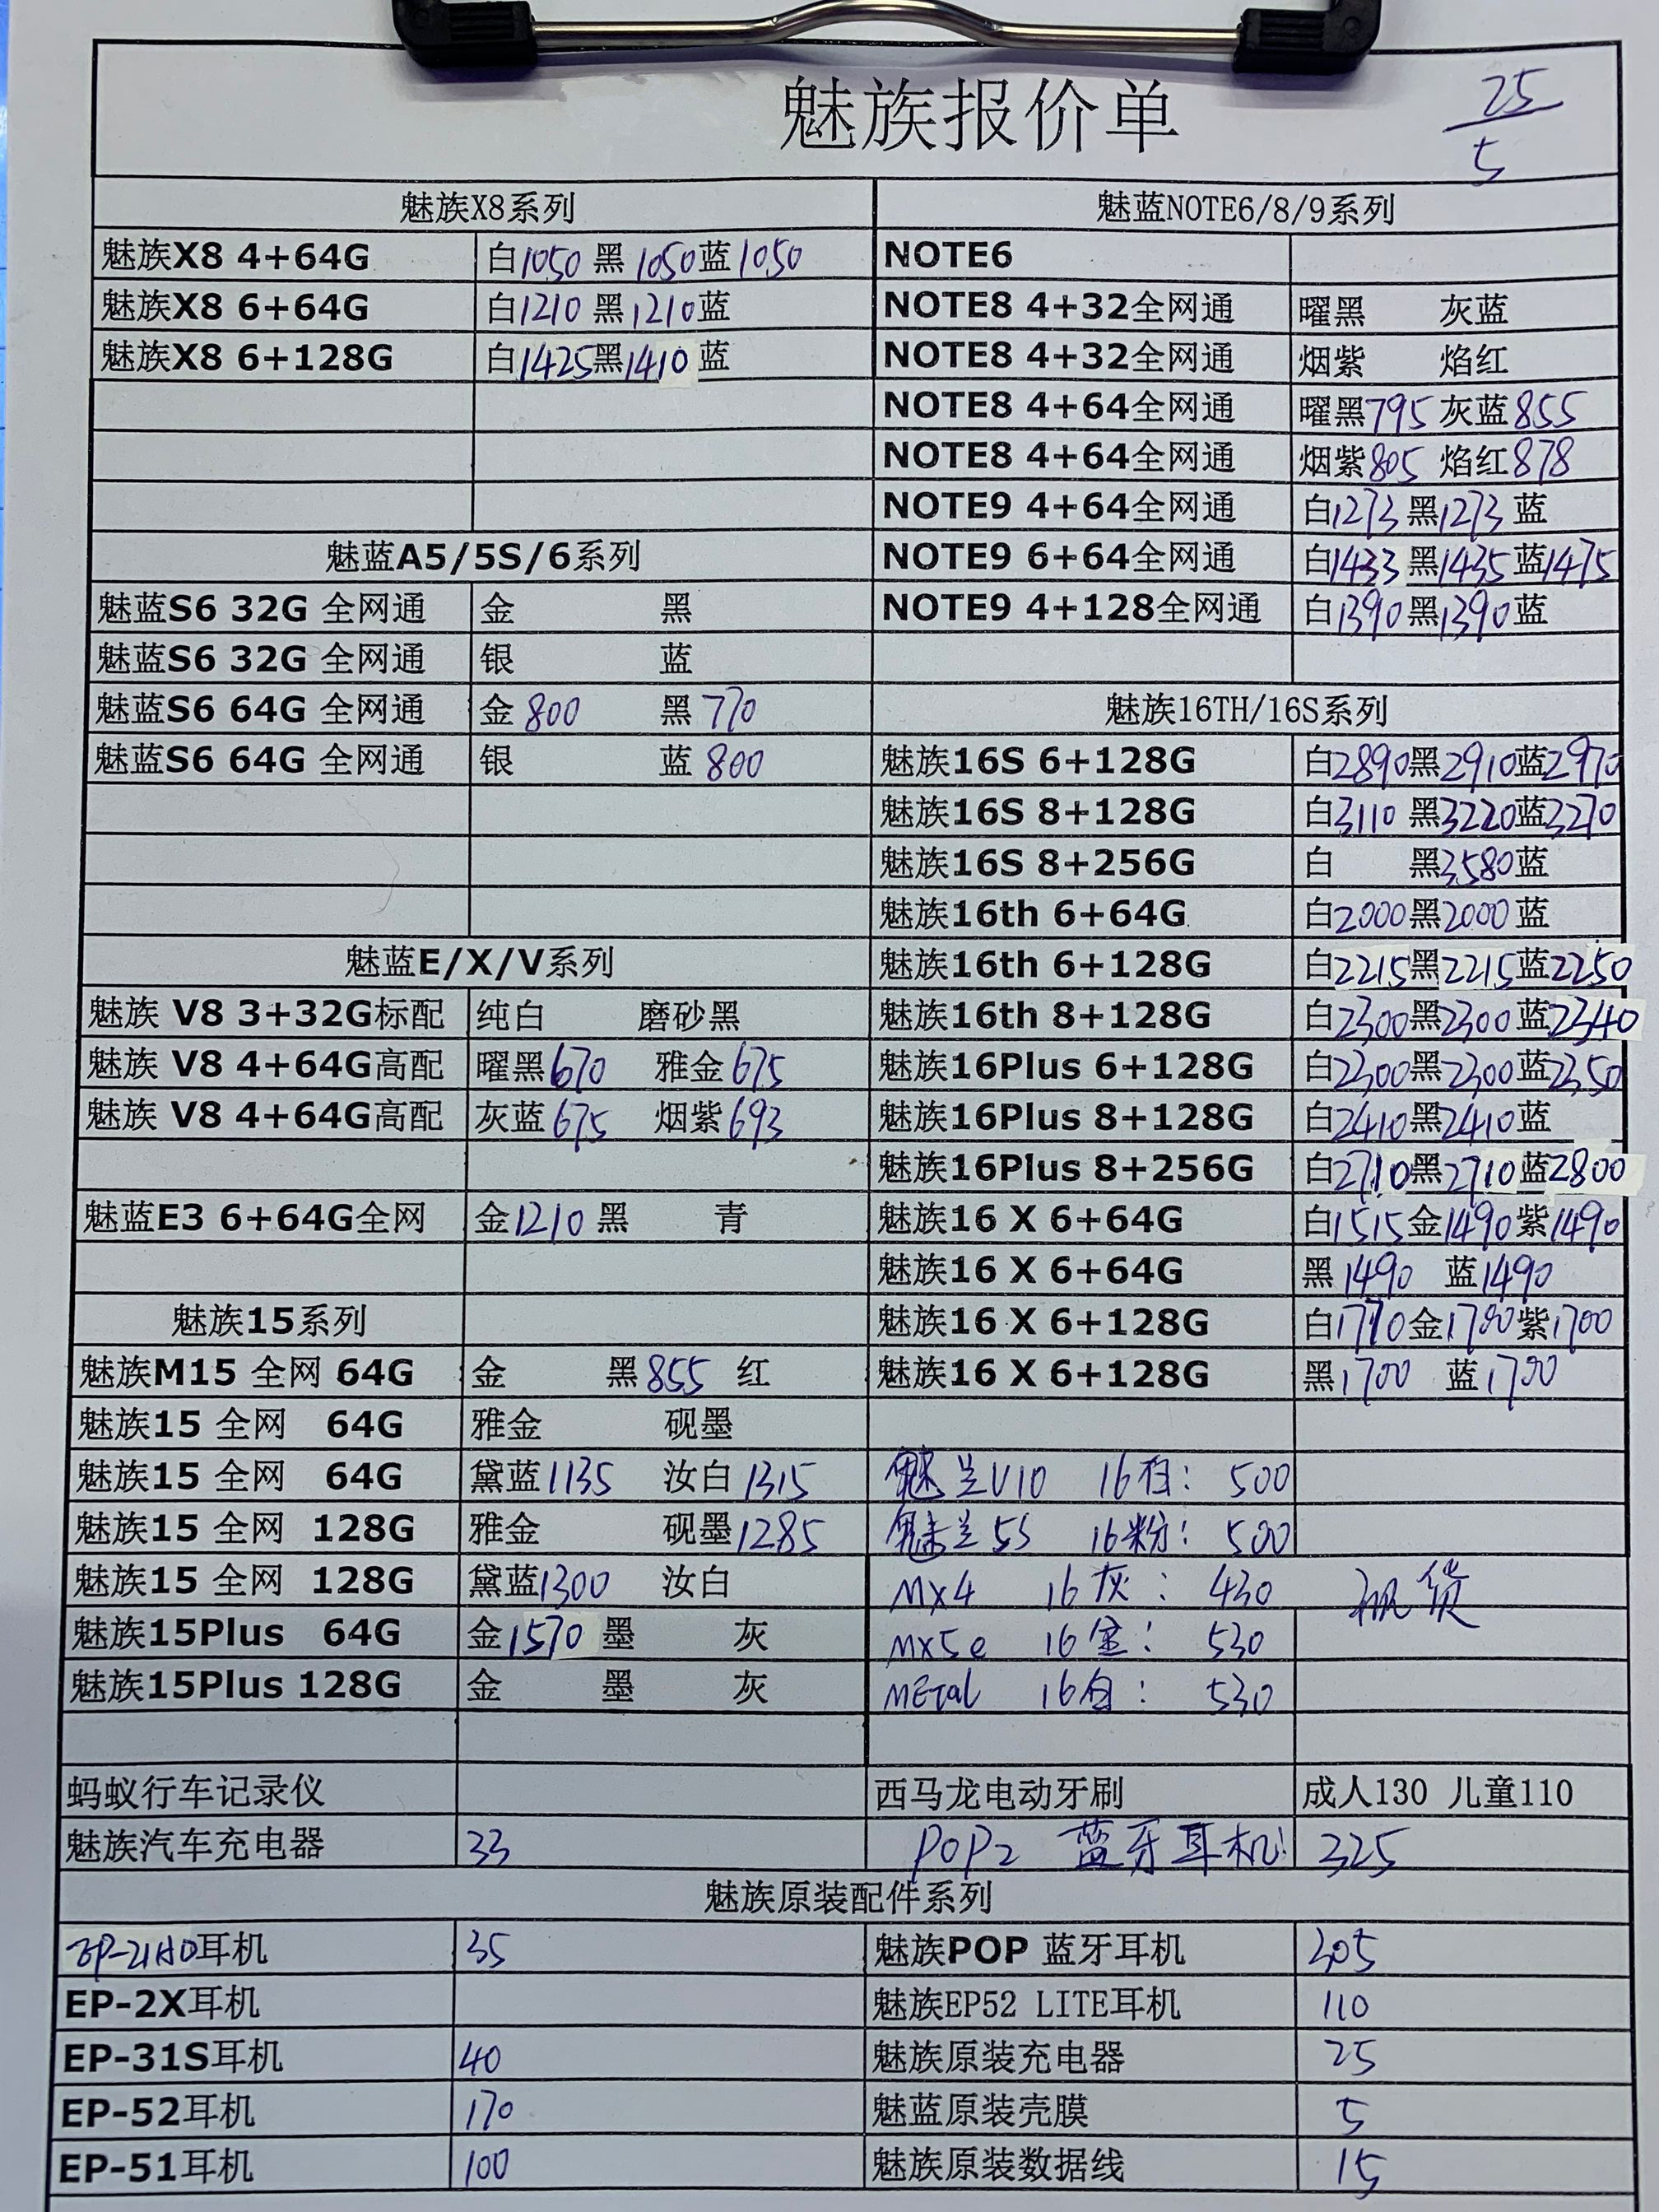 魅族报价单
25/5
魅族X8系列
魅族X8 4+64G 白1050 黑1050 蓝1050
魅族X8 6+64G 白1210 黑1210 蓝
魅族X8 6+128G 白1425 黑1410 蓝
魅蓝A5/5S/6系列
魅蓝S6 32G 全网通 金 黑
魅蓝S6 32G 全网通 银 蓝
魅蓝S6 64G 全网通 金800 黑770
魅蓝S6 64G 全网通 银 蓝800
魅蓝E/X/V系列
魅族 V8 3+32G标配 纯白 磨砂黑
魅族 V8 4+64G高配 曜黑670 雅金675
魅族 V8 4+64G高配 灰蓝675 烟紫693
魅蓝E3 6+64G全网 金1210 黑 青
魅族15系列
魅族M15 全网 64G 金 黑855 红
魅族15 全网 64G 雅金 砚墨
魅族15 全网 64G 黛蓝1135 汝白1315
魅族15 全网 128G 雅金 砚墨1285
魅族15 全网 128G 黛蓝1300 汝白
魅族15Plus 64G 金1570 墨 灰
魅族15Plus 128G 金 墨 灰
蚂蚁行车记录仪
魅族汽车充电器 33
魅蓝NOTE6/8/9系列
NOTE6
NOTE8 4+32全网通 曜黑 灰蓝
NOTE8 4+32全网通 烟紫 焰红
NOTE8 4+64全网通 曜黑795 灰蓝855
NOTE8 4+64全网通 烟紫805 焰红878
NOTE9 4+64全网通 白1273 黑1273 蓝
NOTE9 6+64全网通 白1433 黑1435 蓝1475
NOTE9 4+128全网通 白1390 黑1390 蓝
魅族16TH/16S系列
魅族16S 6+128G 白2890 黑2910 蓝2970
魅族16S 8+128G 白3110 黑3220 蓝3270
魅族16S 8+256G 白 黑3580 蓝
魅族16th 6+64G 白2000 黑2000 蓝
魅族16th 6+128G 白2215 黑2215 蓝2250
魅族16th 8+128G 白2300 黑2300 蓝2340
魅族16Plus 6+128G 白2300 黑2300 蓝2350
魅族16Plus 8+128G 白2410 黑2410 蓝
魅族16Plus 8+256G 白2710 黑2710 蓝2800
魅族16 X 6+64G 白1515 金1490 紫1490
魅族16 X 6+64G 黑1490 蓝1490
魅族16 X 6+128G 白1710 金1700 紫1700
魅族16 X 6+128G 黑1700 蓝1700
魅兰U10 16白: 500
魅兰5S 16粉: 500
MX4 16灰: 430
MX5e 16金: 530
METal 16白: 530
西马龙电动牙刷 成人130 儿童110
POP2 蓝牙耳机: 325
魅族原装配件系列
EP-21HD耳机 35 魅族POP 蓝牙耳机 305
EP-2X耳机 魅族EP52 LITE耳机 110
EP-31S耳机 40 魅族原装充电器 25
EP-52耳机 170 魅蓝原装壳膜 5
EP-51耳机 100 魅族原装数据线 15